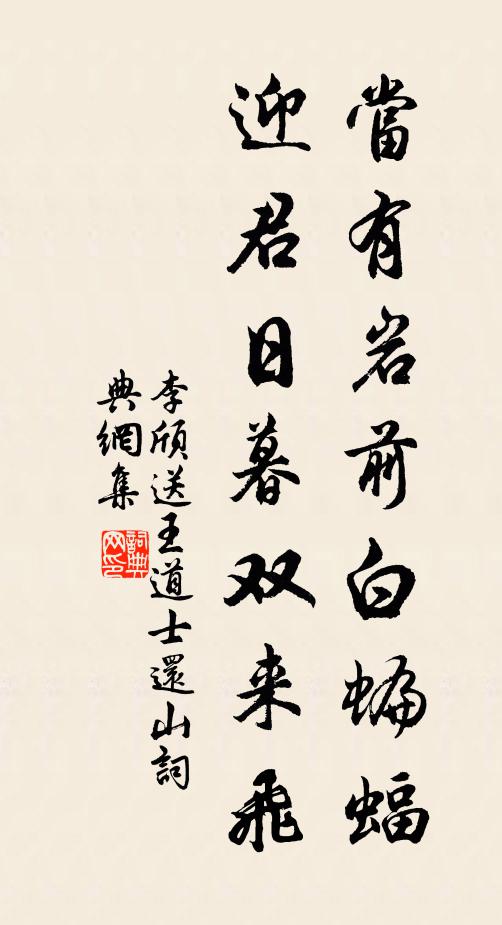 當有岩前白蝙蝠
迎君日暮双来飛
李頎送王道士還山詞
典網集
詞典网印